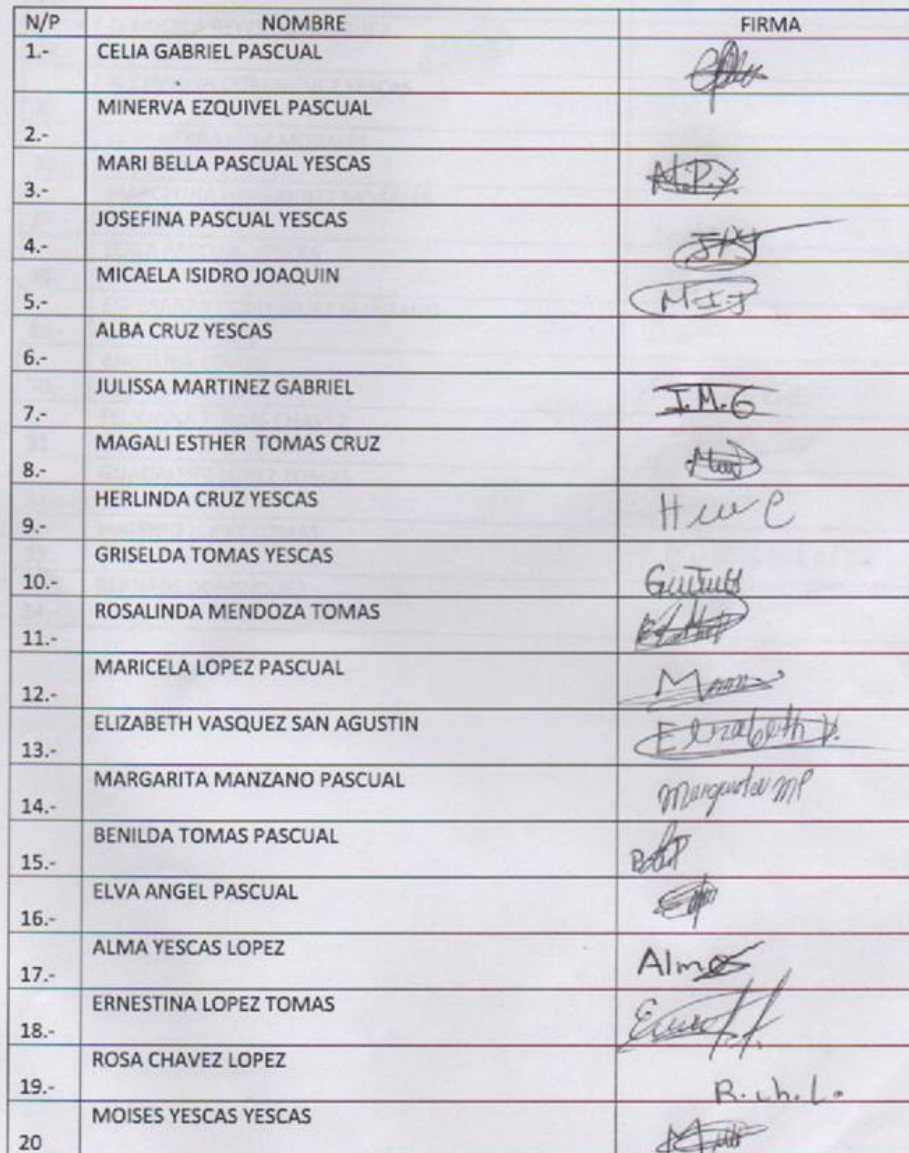 N/P NOMBRE FIRMA
1.- CELIA GABRIEL PASCUAL
MINERVA EZQUIVEL PASCUAL
2.-
MARI BELLA PASCUAL YESCAS
3.- M.P.Y.
JOSEFINA PASCUAL YESCAS
4.- JPY
MICAELA ISIDRO JOAQUIN
5.- M-I-J
ALBA CRUZ YESCAS
6.-
JULISSA MARTINEZ GABRIEL
7.- J.M.G
MAGALI ESTHER TOMAS CRUZ
8.-
HERLINDA CRUZ YESCAS
9.-
GRISELDA TOMAS YESCAS
10.-
ROSALINDA MENDOZA TOMAS
11.-
MARICELA LOPEZ PASCUAL
12.-
ELIZABETH VASQUEZ SAN AGUSTIN
13.- Elizabeth V.
MARGARITA MANZANO PASCUAL
14.- Margarita MP
BENILDA TOMAS PASCUAL
15.-
ELVA ANGEL PASCUAL
16.-
ALMA YESCAS LOPEZ
17.- Alma
ERNESTINA LOPEZ TOMAS
18.-
ROSA CHAVEZ LOPEZ
19.- R.ch.L.
MOISES YESCAS YESCAS
20